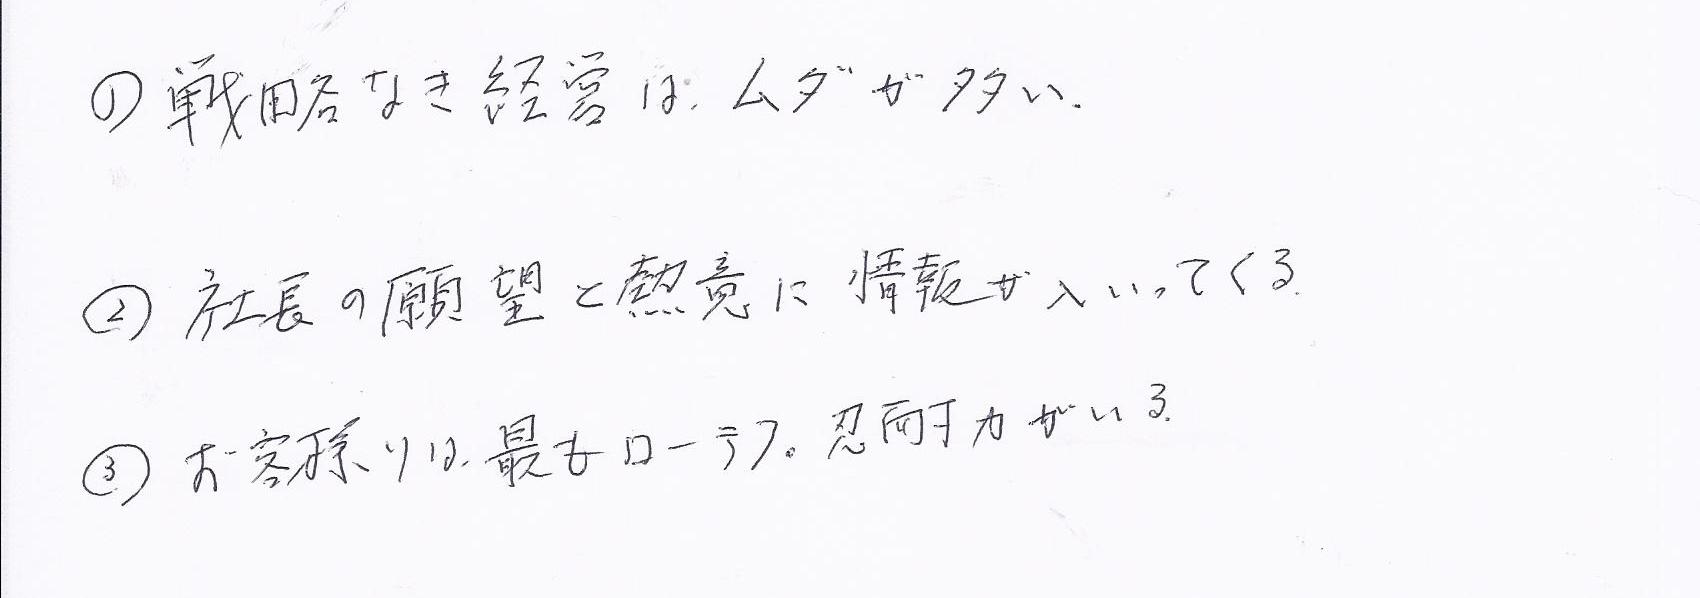 ① 戦略なき経営は、ムダが多い。
② 社長の願望と熱意に情報が入いってくる。
③ お客様りは、最もローラフ。忍耐力がいる。